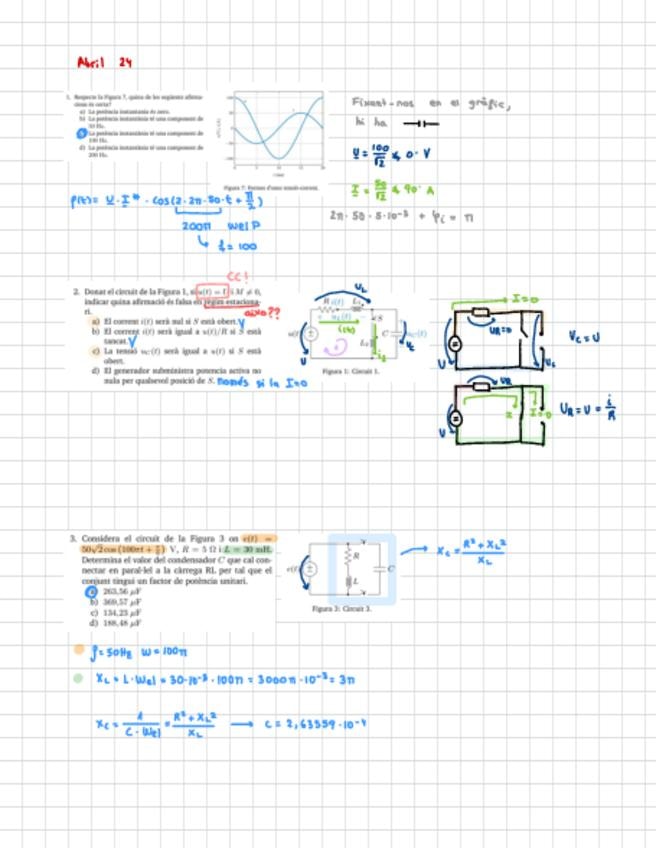 Abril 24
1. Respecte la Figura 7, quina de les següents afirma-
cions és certa?
a) La potència instantània és zero.
b) La potència instantània té una component de
50 Hz.
c) La potència instantània té una component de
100 Hz.
d) La potència instantània té una component de
200 Hz.
Fixant-nos en el gràfic,
hi ha
U = 100/√2 ∡ 0° V
I = 50/√2 ∡ 90° A
2π · 50 · 5·10⁻³ + φi = π
p(t) = U · I* · cos(2·2π·50·t + π/2)
200π wel P
↳ f = 100
CC!
2. Donat el circuit de la Figura 1, si u(t) = U i M ≠ 0,
indicar quina afirmació és falsa en règim estaciona-
ri.
això??
a) El corrent i(t) serà nul si S està obert. V
b) El corrent i(t) serà igual a u(t)/R si S està
tancat. V
c) La tensió uC(t) serà igual a u(t) si S està
obert.
d) El generador subministra potencia activa no
nula per qualsevol posició de S. Només si la I=0
UL
R i(t) L₁
S
C
uC(t)
U
Figura 1: Circuit 1.
I=0
UR=0
U
Vc = U
UR
I=0
U
UR = U = i/R
3. Considera el circuit de la Figura 3 on e(t) =
50√2 cos (100πt + π/2) V, R = 5 Ω i L = 30 mH.
Determina el valor del condensador C que cal con-
nectar en paral·lel a la càrrega RL per tal que el
conjunt tingui un factor de potència unitari.
a) 263,56 µF
b) 369,57 µF
c) 134,23 µF
d) 188,48 µF
e(t)
R
L
C
Figura 3: Circuit 3.
→ Xc = R² + XL² / XL
f = 50Hz w = 100π
XL = L · Wel = 30·10⁻³ · 100π = 3000π · 10⁻³ = 3π
Xc = 1 / C · Wel = R² + XL² / XL → C = 2,63559·10⁻⁴